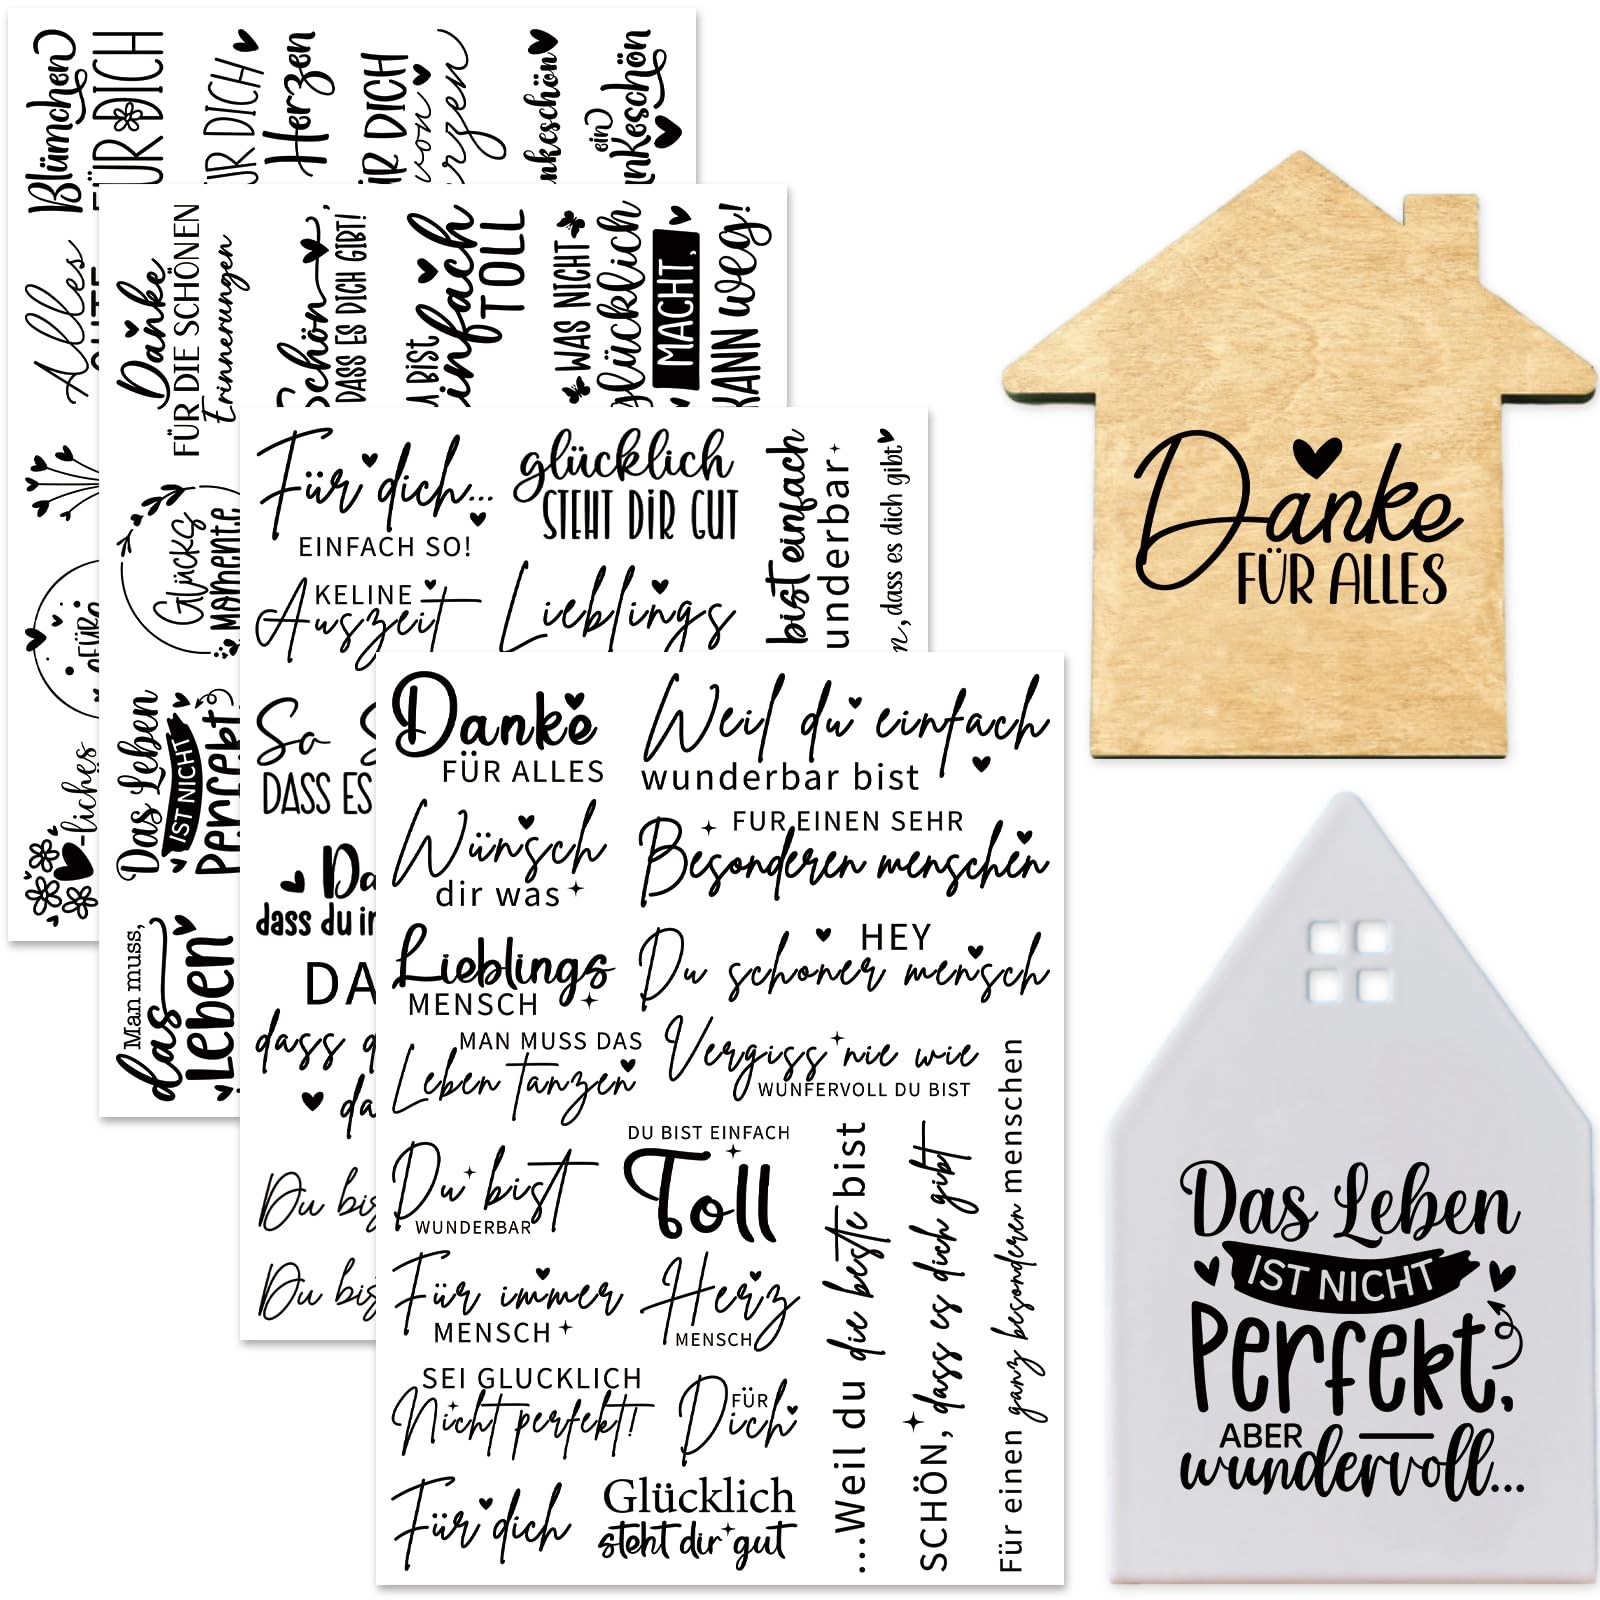 Blümchen
FÜR DICH
Herzen
von
ein
Alles
FÜR
-liches
Danke
FÜR DIE SCHÖNEN
Erinnerungen
Schön,
DASS ES DICH GIBT!
BIST
einfach
TOLL
WAS NICHT
glücklich
MACHT,
KANN weg!
Glücks
Momente
Das Leben
IST NICHT
Perfekt
Man muss,
das
Leben
Für dich...
EINFACH SO!
glücklich
STEHT DIR GUT
KELINE
Auszeit
Lieblings
bist einfach
dass es dich gibt
So
DASS ES
dass du
dass
Du bis
Du bis
Danke
FÜR ALLES
Weil du einfach
wunderbar bist
Wünsch
dir was
FUR EINEN SEHR
Besonderen menschen
Lieblings
MENSCH
HEY
Du schoner mensch
MAN MUSS DAS
Leben tanzen
Vergiss nie wie
WUNFERVOLL DU BIST
Du bist
WUNDERBAR
DU BIST EINFACH
Toll
Für immer
MENSCH
Herz
MENSCH
SEI GLUCKLICH
Nicht perfekt!
FÜR
Dich
Für dich
Glücklich
steht dir gut
...Weil du die beste bist
SCHÖN, dass es dich gibt
Für einen ganz besonderen menschen
Danke
FÜR ALLES
Das Leben
IST NICHT
Perfekt,
ABER
wundervoll...